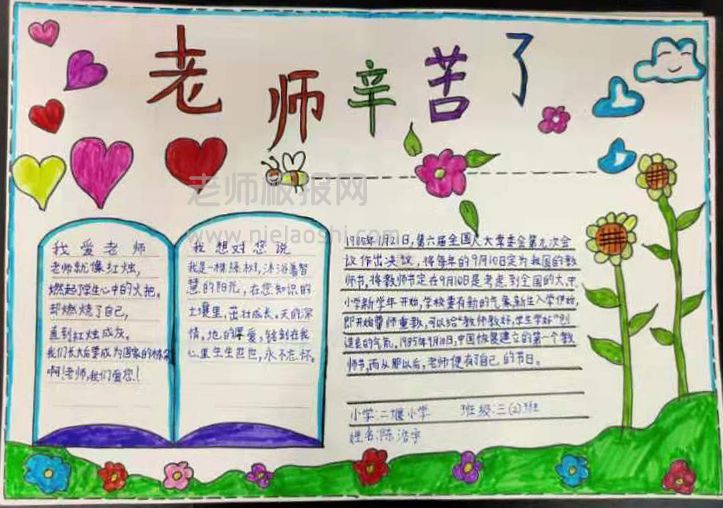 老师辛苦了
老师板报网
www.njelaoshi.com
我爱老师
老师就像红烛,
燃起学生心中的火把。
却燃烧了自己,
直到红烛成灰。
我们长大后要成为国家的栋梁
啊!老师,我们爱您!
我想对您说
我是一棵绿树,沐浴着智
慧的阳光,在您知识的
土壤里,茁壮成长,天的深
情,地的厚爱,铭刻在我
心里生生世世,永不忘怀。
1985年1月21日,第六届全国人大常委会第九次会
议作出决议,将每年的9月10日定为我国的教
师节,将教师节定在9月10日是考虑到全国的大,中
小学新学年开始,学校要有新的气象,新生入学伊始,
即开始尊师重教,可以给"教师教好,学生学好"创
造良好的气氛,1985年9月10日,中国恢复建立的第一个教
师节,而从那以后,老师便有了自己的节日。
小学:二堰小学 班级:三(2)班
姓名:陈浩宇